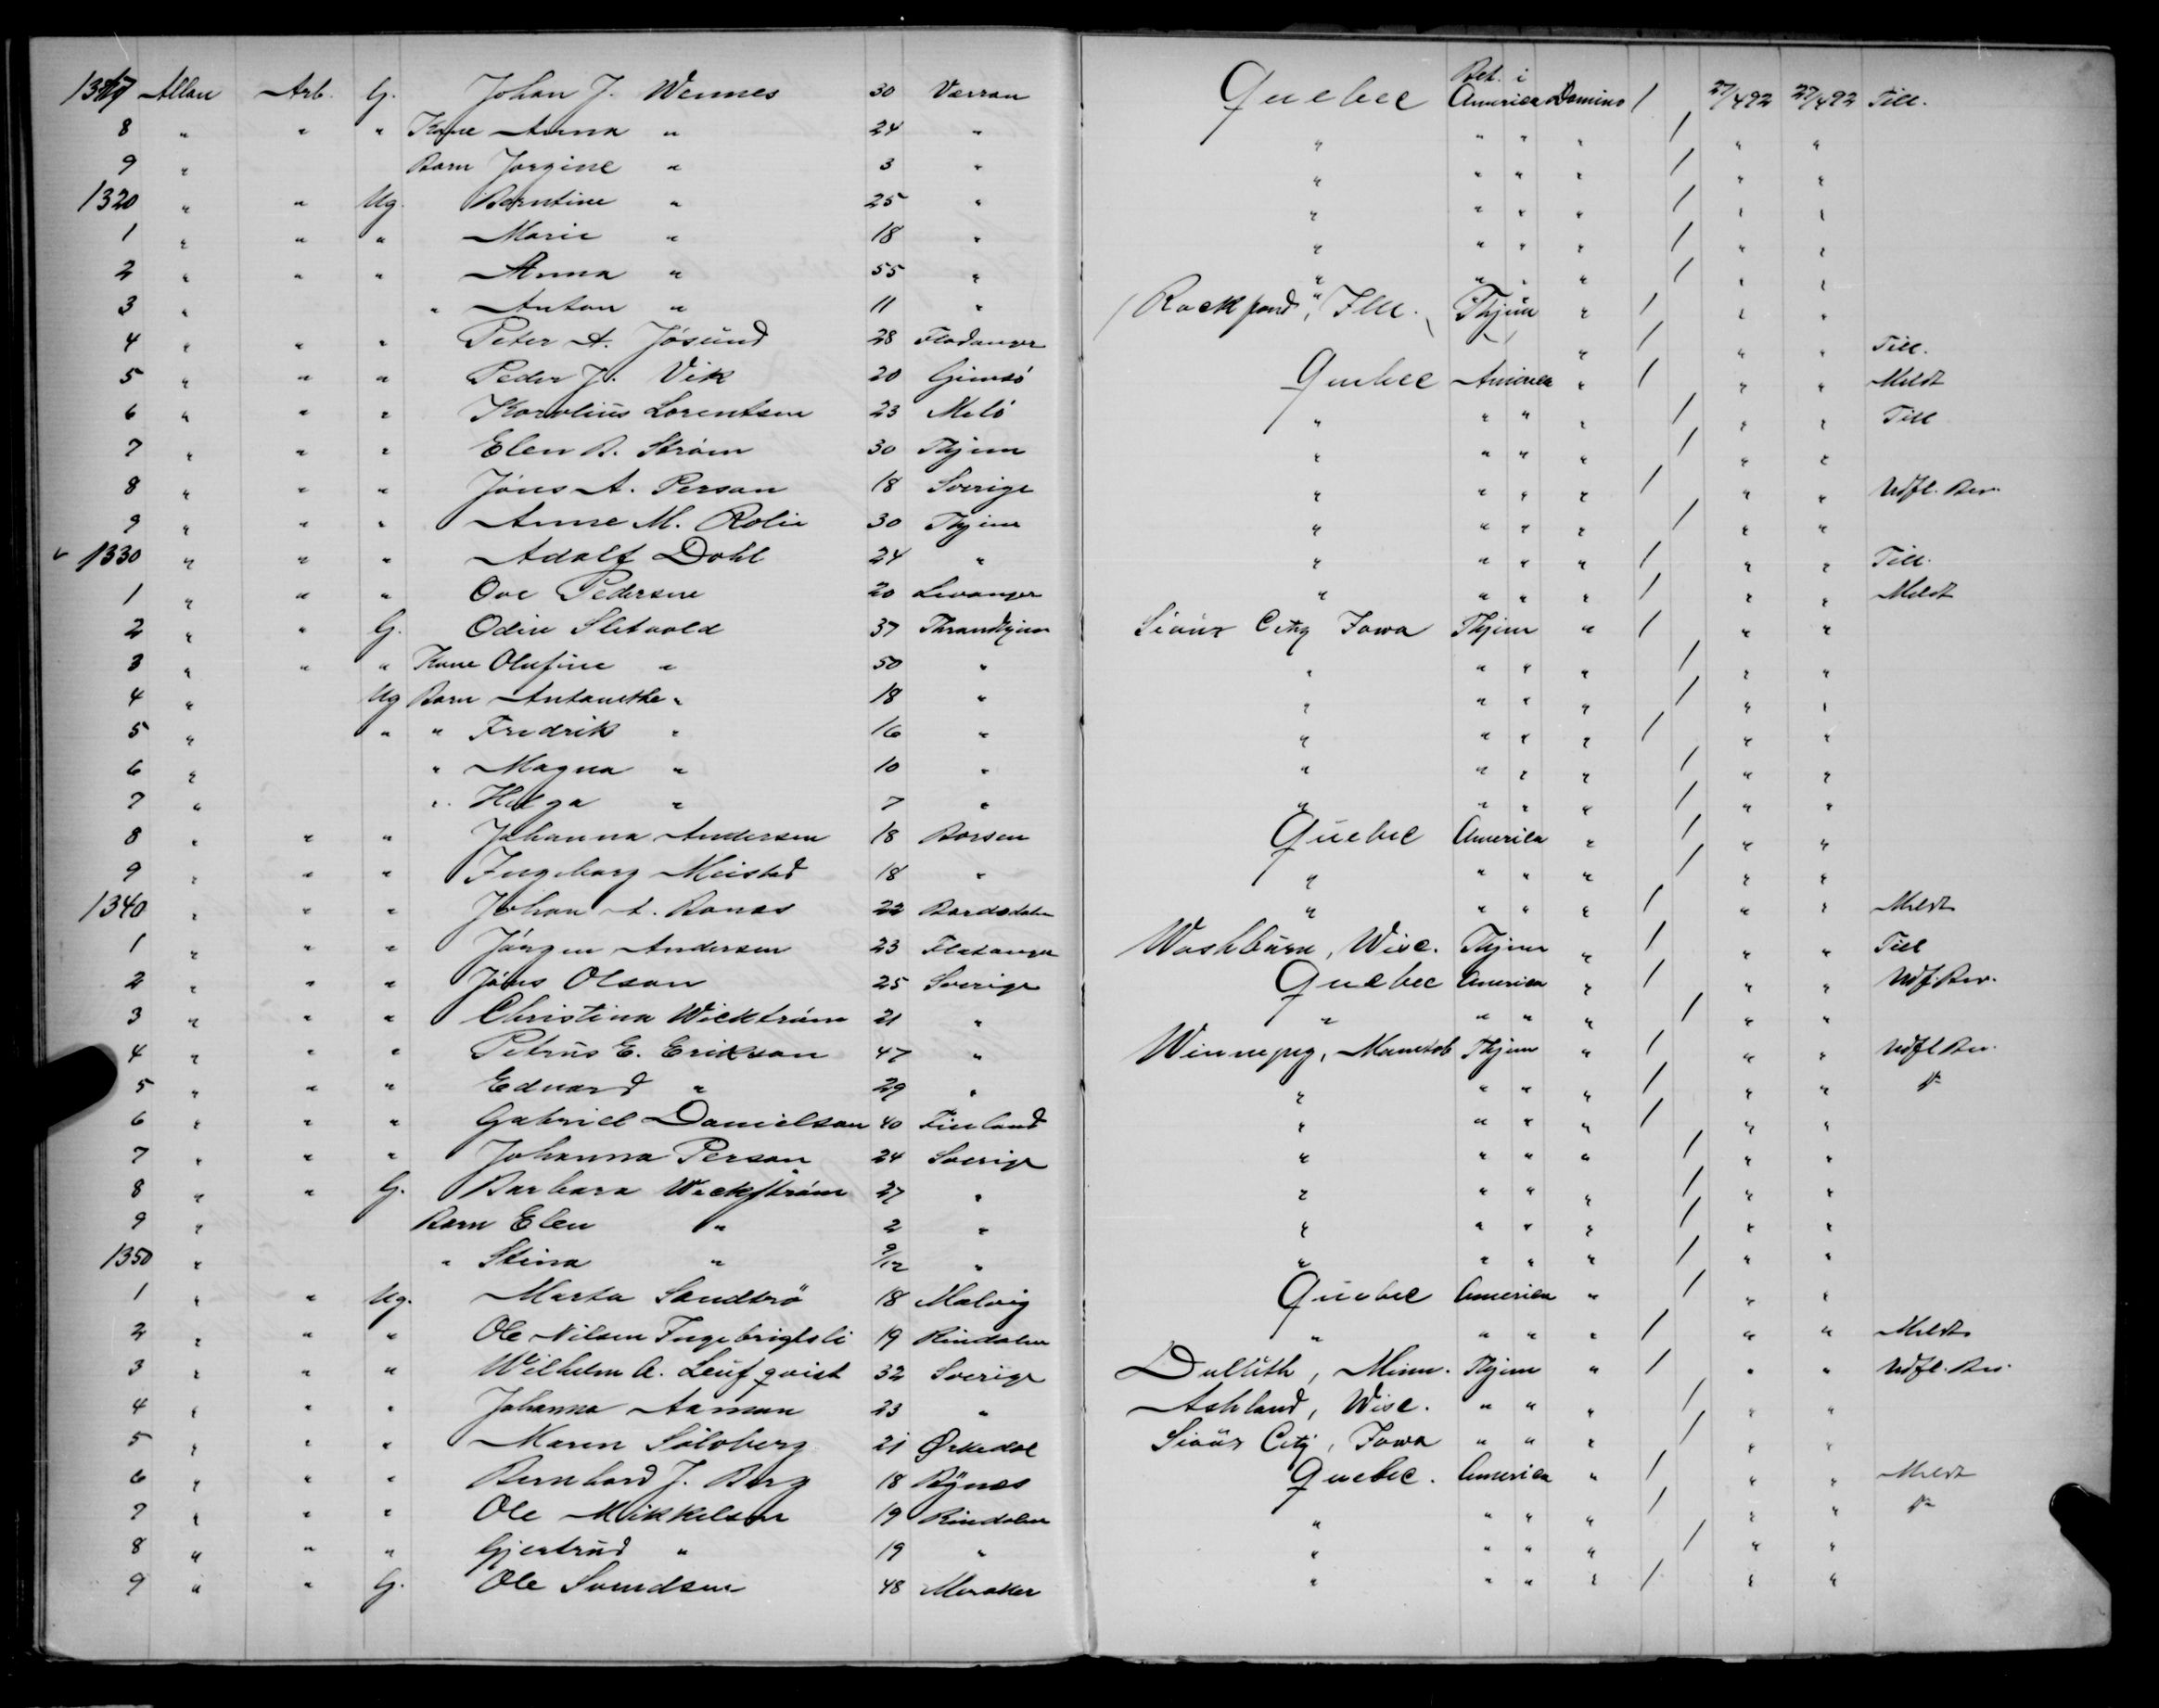 1317 Allan Arb. G. Johan J. Wennes 30 Værran Quebec Bet. i America Domino / 27/4 92 27/4 92 Till.
8 " " " Kone Anna " 24 " " " " " / " "
9 " Barn Jørgine " 3 " " " " " / " "
1320 " " Ug. Berntine " 25 " " " " " / " "
1 " " " Marie " 18 " " " " " / " "
2 " " " Anna " 55 " " " " " / " "
3 " " Anton " 11 " " Rockford, Ill. Thjem " / " "
4 " " " Peter A. Jøsund 28 Fladanger " / " " Till.
5 " " " Peder J. Vik 20 Gimsö Quebec America " / " " Meldt
6 " " " Karolius Lorentsen 23 Melö " " " " / " " Till
7 " " " Elen B. Strøm 30 Thjem " " " " / " "
8 " " " Jöns A. Person 18 Sverige " " " " / " " Udfl. Bev.
9 " " " Anne M. Rolie 30 Thjem " " " " / " "
1330 " " " Adolf Dahl 24 " " " " " / " " Till.
1 " " " Ove Pedersen 20 Levanger " " " " / " " Meldt
2 " " G. Odin Sletvold 37 Throndhjem Sioux City Iowa Thjem " / " "
3 " " " Kone Olufine " 50 " " " " " / " "
4 " Ug Barn Antonethe " 18 " " " " " / " "
5 " " " Fredrik " 16 " " " " " / " "
6 " " Magna " 10 " " " " " / " "
7 " " Helga " 7 " " " " " / " "
8 " " " Johanna Andersen 18 Børsen Quebec America " / " "
9 " " " Ingeborg Meistad 18 " " " " " / " "
1340 " " " Johan A. Bones 22 Bardodalen " " " " / " " Meldt
1 " " " Jørgen Andersen 23 Flatanger Washburn, Wisc. Thjem " / " " Till
2 " " " Jöns Olson 25 Sverige Quebec America " / " " Udf. Bev.
3 " " " Christina Wickström 21 " " " " " / " "
4 " " " Petrus E. Erikson 47 " Winnepeg, Manitob Thjem " / " " Udfl Bev.
5 " " " Edvard " 29 " " " " " / " "
6 " " " Gabriel Danielson 40 Finland " " " " / " "
7 " " " Johanna Person 24 Sverige " " " " / " "
8 " " G. Barbara Wickström 27 " " " " " / " "
9 " Barn Elen " 2 " " " " " / " "
1350 " " Stina " 9/12 " " " " " / " "
1 " " Ug. Marta Sandbrö 18 Malvig Quebec America " / " "
2 " " " Ole Nilsen Ingebrigtsli 19 Rindalen " " " " / " " Meldt
3 " " " Wilhelm A. Leufqvist 32 Sverige Dulluth, Minn. Thjem " / " " Udfl. Bev.
4 " " " Johanna Aaman 23 " Ashland, Wisc. " " " / " "
5 " " " Maren Sölvberg 21 Ørkedal Sioux City, Iowa " " " / " "
6 " " " Bernhard J. Berg 18 Bynes Quebec. America " / " " Meldt
7 " " " Ole Mikkelsen 19 Rindalen " " " " / " "
8 " " " Gjertrud " 19 " " " " " / " "
9 " " G. Ole Svendsen 48 Meraker " " " " / " "